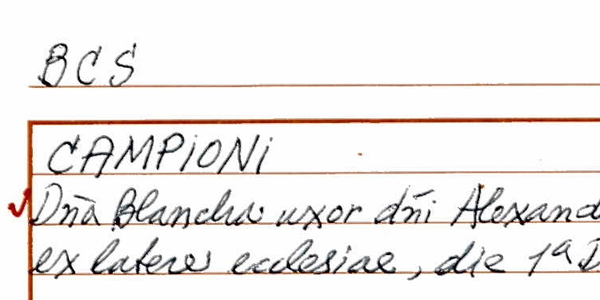 BCS
CAMPIONI
Dña Blancha uxor dñi Alexand
ex latere ecclesiae, die 1ª D